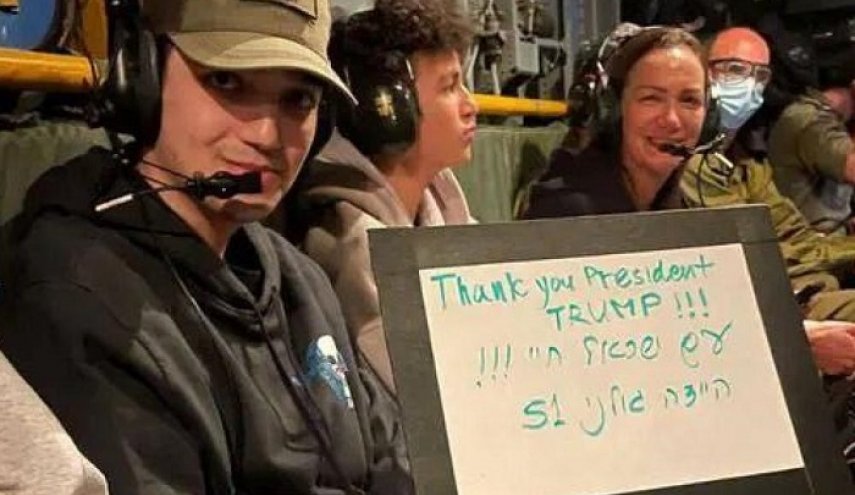 Thank you President
TRUMP !!!
עם ישראל חי !!!
היידה גולני 51